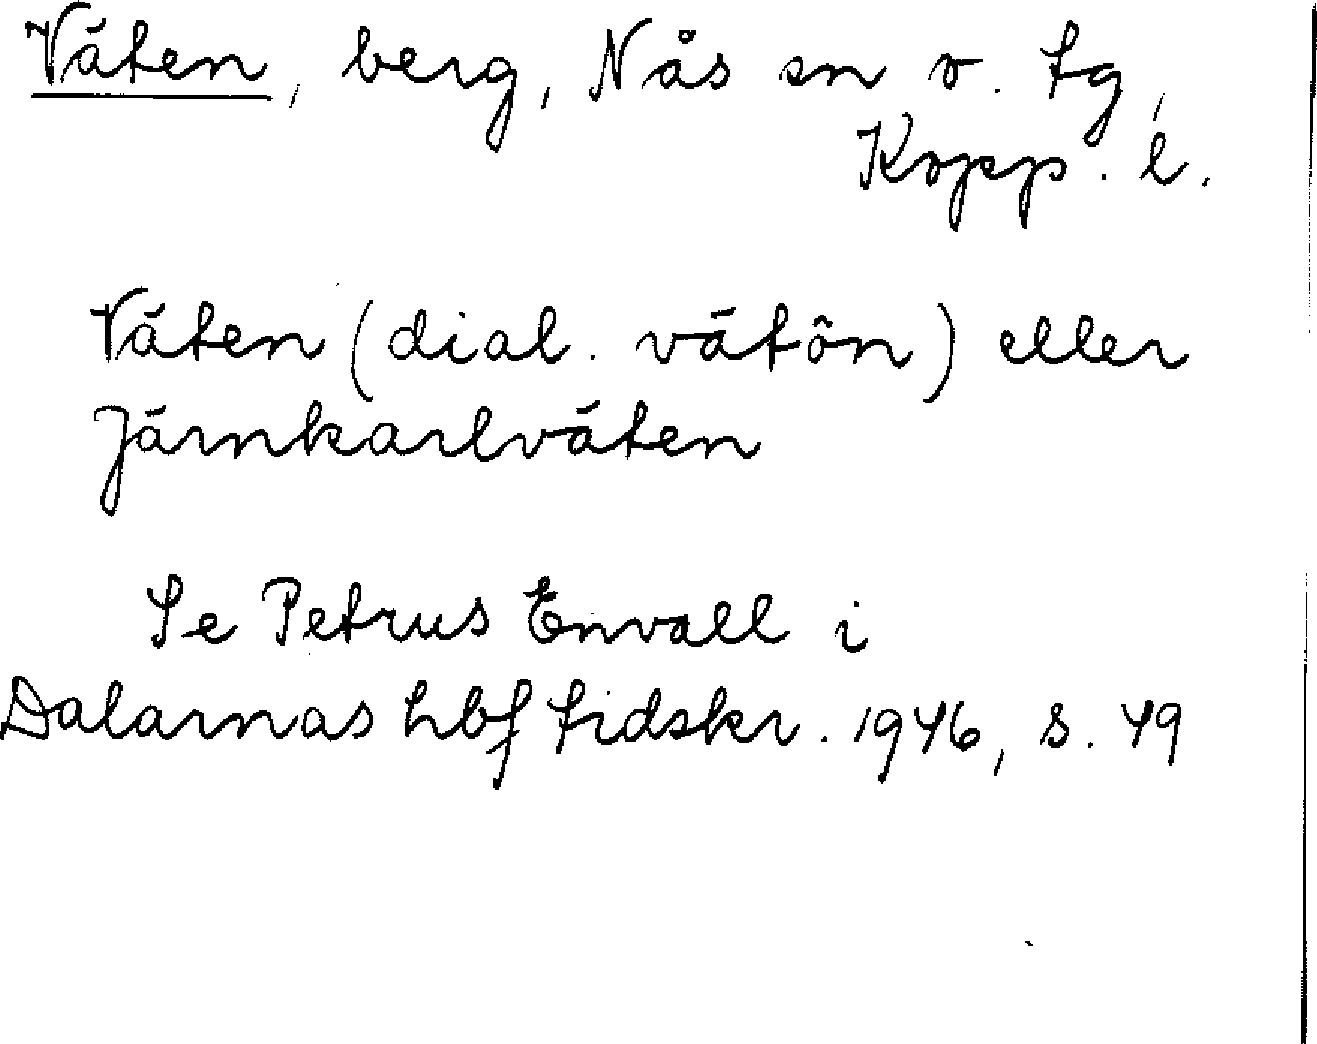 Väten, berg, Nås sn o. tg,
Kopp. l.
Väten (dial. vätôn) eller
Järnkarlväten
Se Petrus Envall i
Dalarnas hbf tidskr. 1946, s. 49